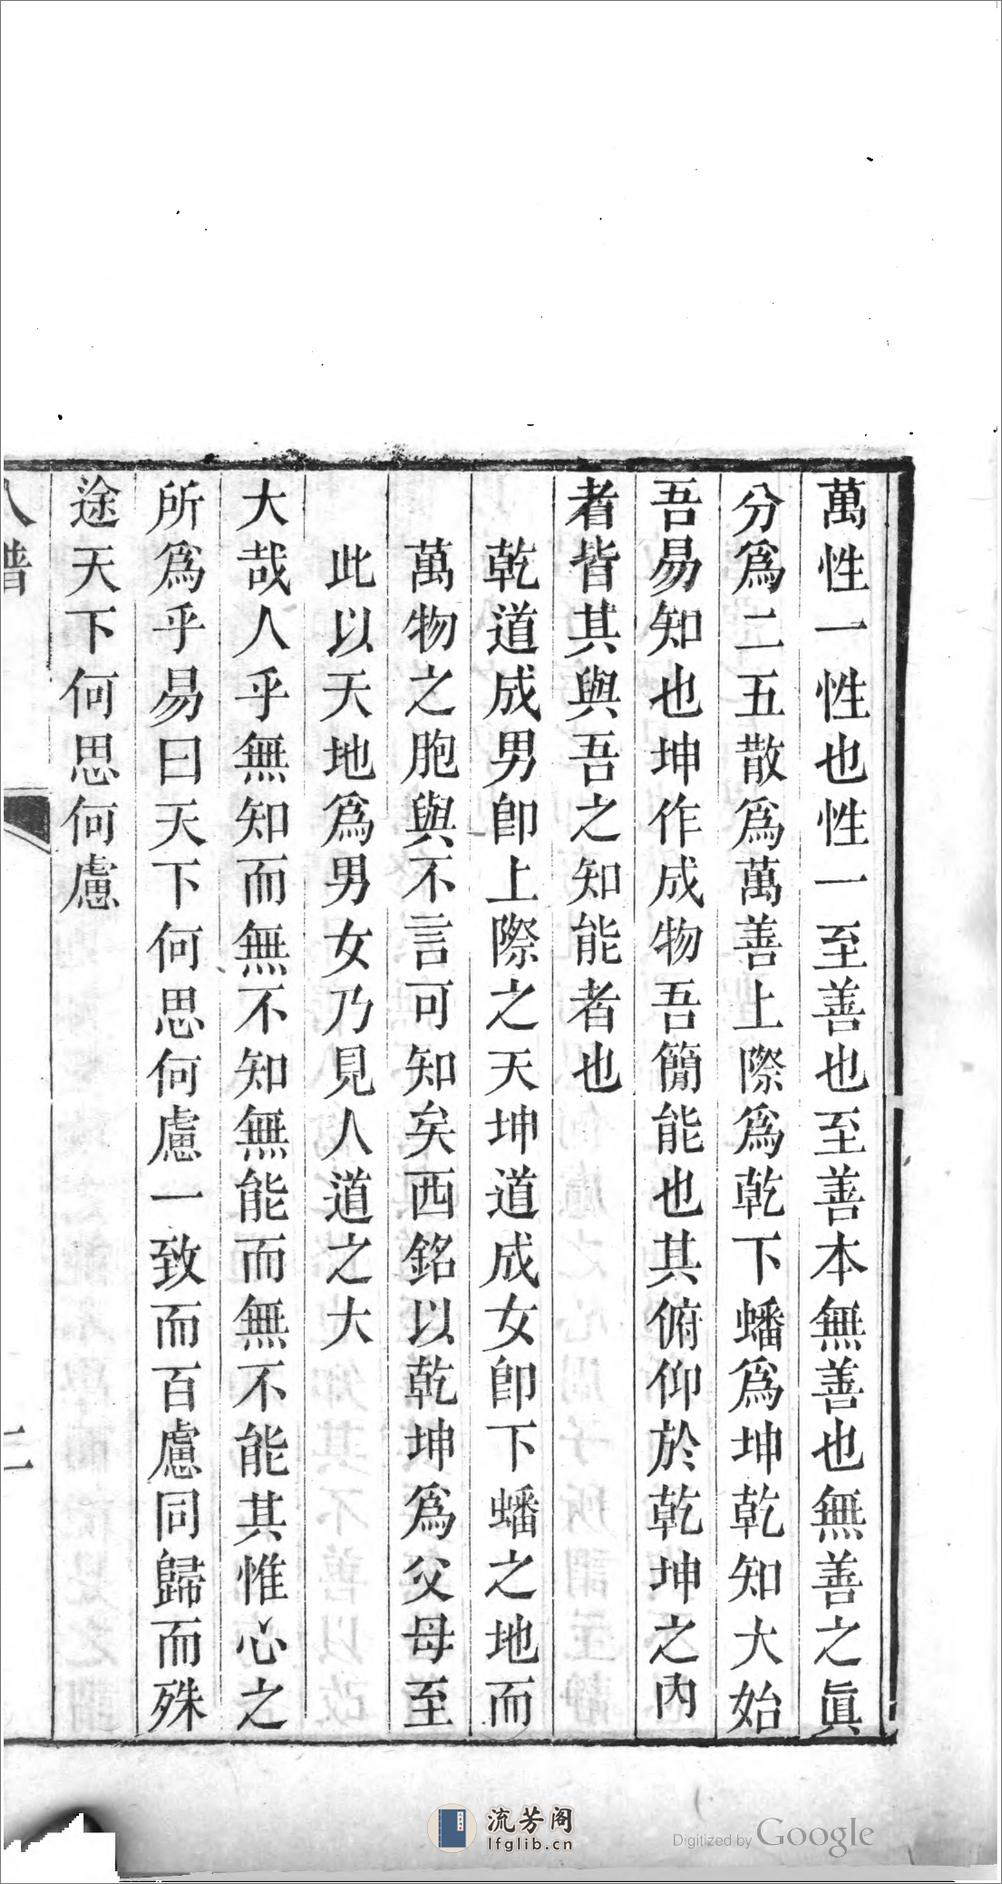 萬性一性也性一至善也至善本無善也無善之眞
分爲二五散爲萬善上際爲乾下蟠爲坤乾知大始
吾易知也坤作成物吾簡能也其俯仰於乾坤之內
者皆其與吾之知能者也
乾道成男卽上際之天坤道成女卽下蟠之地而
萬物之胞與不言可知矣西銘以乾坤爲父母至
此以天地爲男女乃見人道之大
大哉人乎無知而無不知無能而無不能其惟心之
所爲乎易曰天下何思何慮一致而百慮同歸而殊
途天下何思何慮
人譜
二
流芳阁
lfglib.cn
Digitized by Google